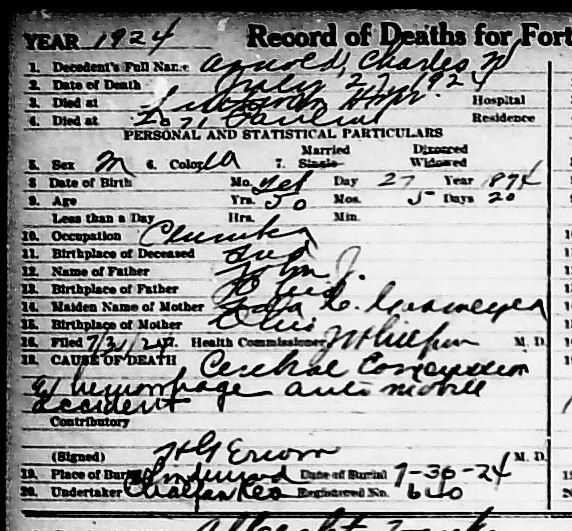 YEAR 1924 Record of Deaths for Fort
1. Decedent's Full Name Arnold, Charles W
2. Date of Death July 27, 1924
3. Died at Lutheran Hospital
4. Died at Residence
PERSONAL AND STATISTICAL PARTICULARS
Married Divorced
5. Sex M 6. Color W 7. Single Widowed
8 Date of Birth Mo. Feb Day 27 Year 1874
9. Age Yrs. 50 Mos. 5 Days 20
Less than a Day Hrs. Min.
10. Occupation Plumber
11. Birthplace of Deceased Ind
12. Name of Father John J.
13. Birthplace of Father Ohio
14. Maiden Name of Mother
15. Birthplace of Mother Ohio
16. Filed 7/31/24 17. Health Commissioner M. D.
18. CAUSE OF DEATH Cerebral Concussion
& hemorrhage automobile
accident
Contributory
(Signed) H G Erwin M. D.
19. Place of Burial Lindenwood Date of Burial 7-30-24
20. Undertaker Registered No. 640